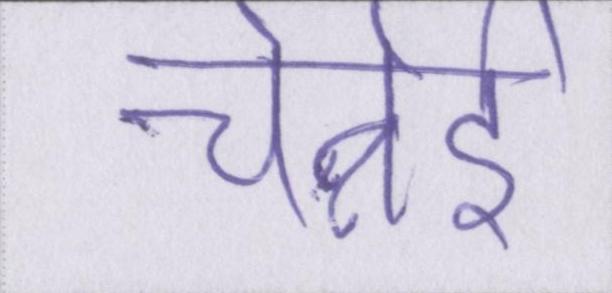 चेन्नेई